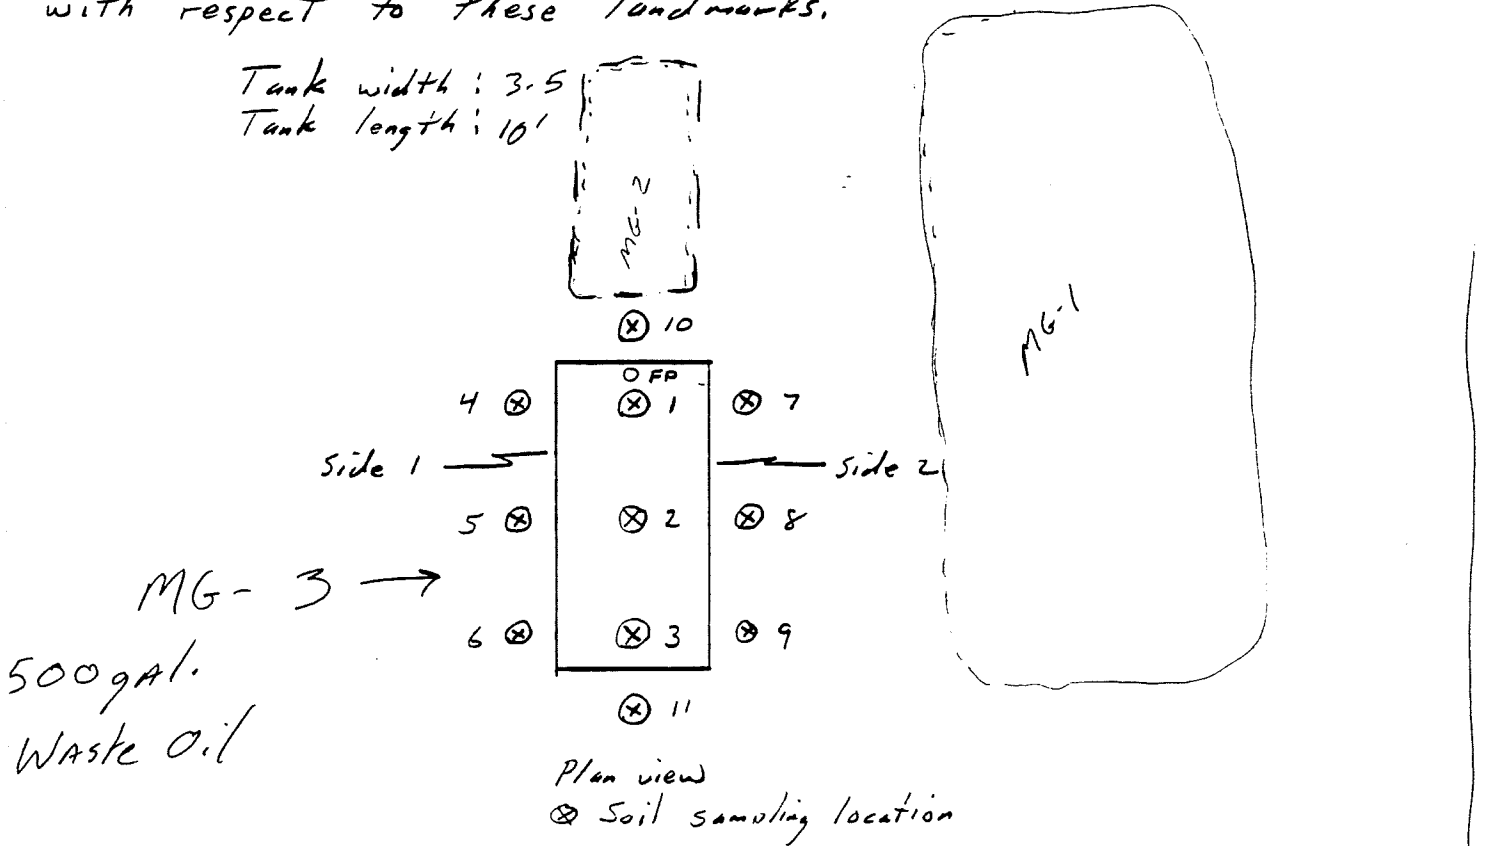 with respect to these landmarks.
Tank width : 3.5
Tank length : 10'
MG-2
MG-1
10
FP
4 1 7
Side 1 Side 2
5 2 8
MG- 3 →
6 3 9
500 gAl.
11
WAste Oil
Plan view
⊗ Soil sampling location